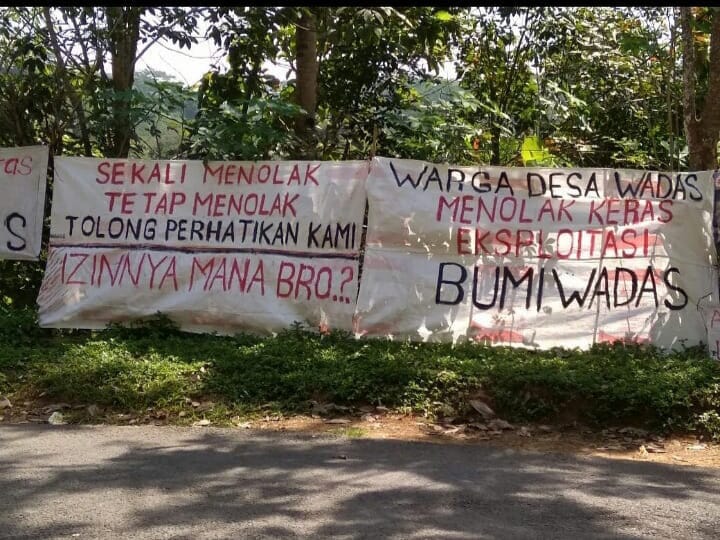 S
SEKALI MENOLAK
TETAP MENOLAK
TOLONG PERHATIKAN KAMI
IZINNYA MANA BRO.?
WARGA DESA WADAS
MENOLAK KERAS
EKSPLOITASI
BUMI WADAS